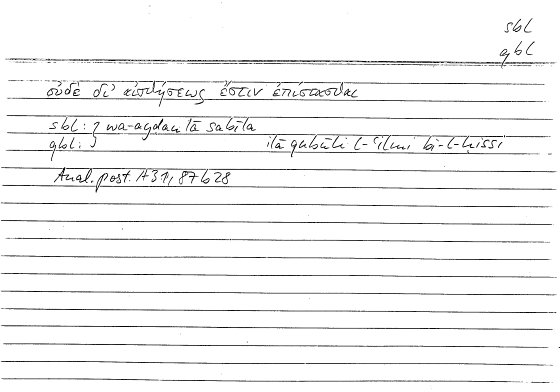 sbl
qbl
οὐδὲ δι' αἰσθήσεως ἔστιν ἐπίστασθαι
sbl: } wa-ayḍan lā sabīla
qbl: } ilā qubūli l-ʿilmi bi-l-ḥissi
Anal. post. A31, 87b28